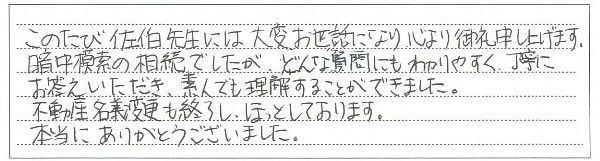 このたび佐伯先生には大変お世話になり心より御礼申し上げます。
暗中模索の相続でしたが、どんな質問にもわかりやすく丁寧に
お答えいただき、素人でも理解することができました。
不動産名義変更も終了し、ほっとしております。
本当にありがとうございました。